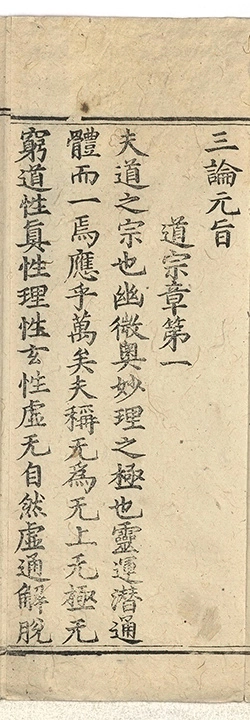 三論元旨
道宗章第一
夫道之宗也幽微奥妙理之極也靈運潜通
體而一焉應乎萬矣夫稱无為无上无極无
窮道性真性理性玄性虛无自然虛通解脫